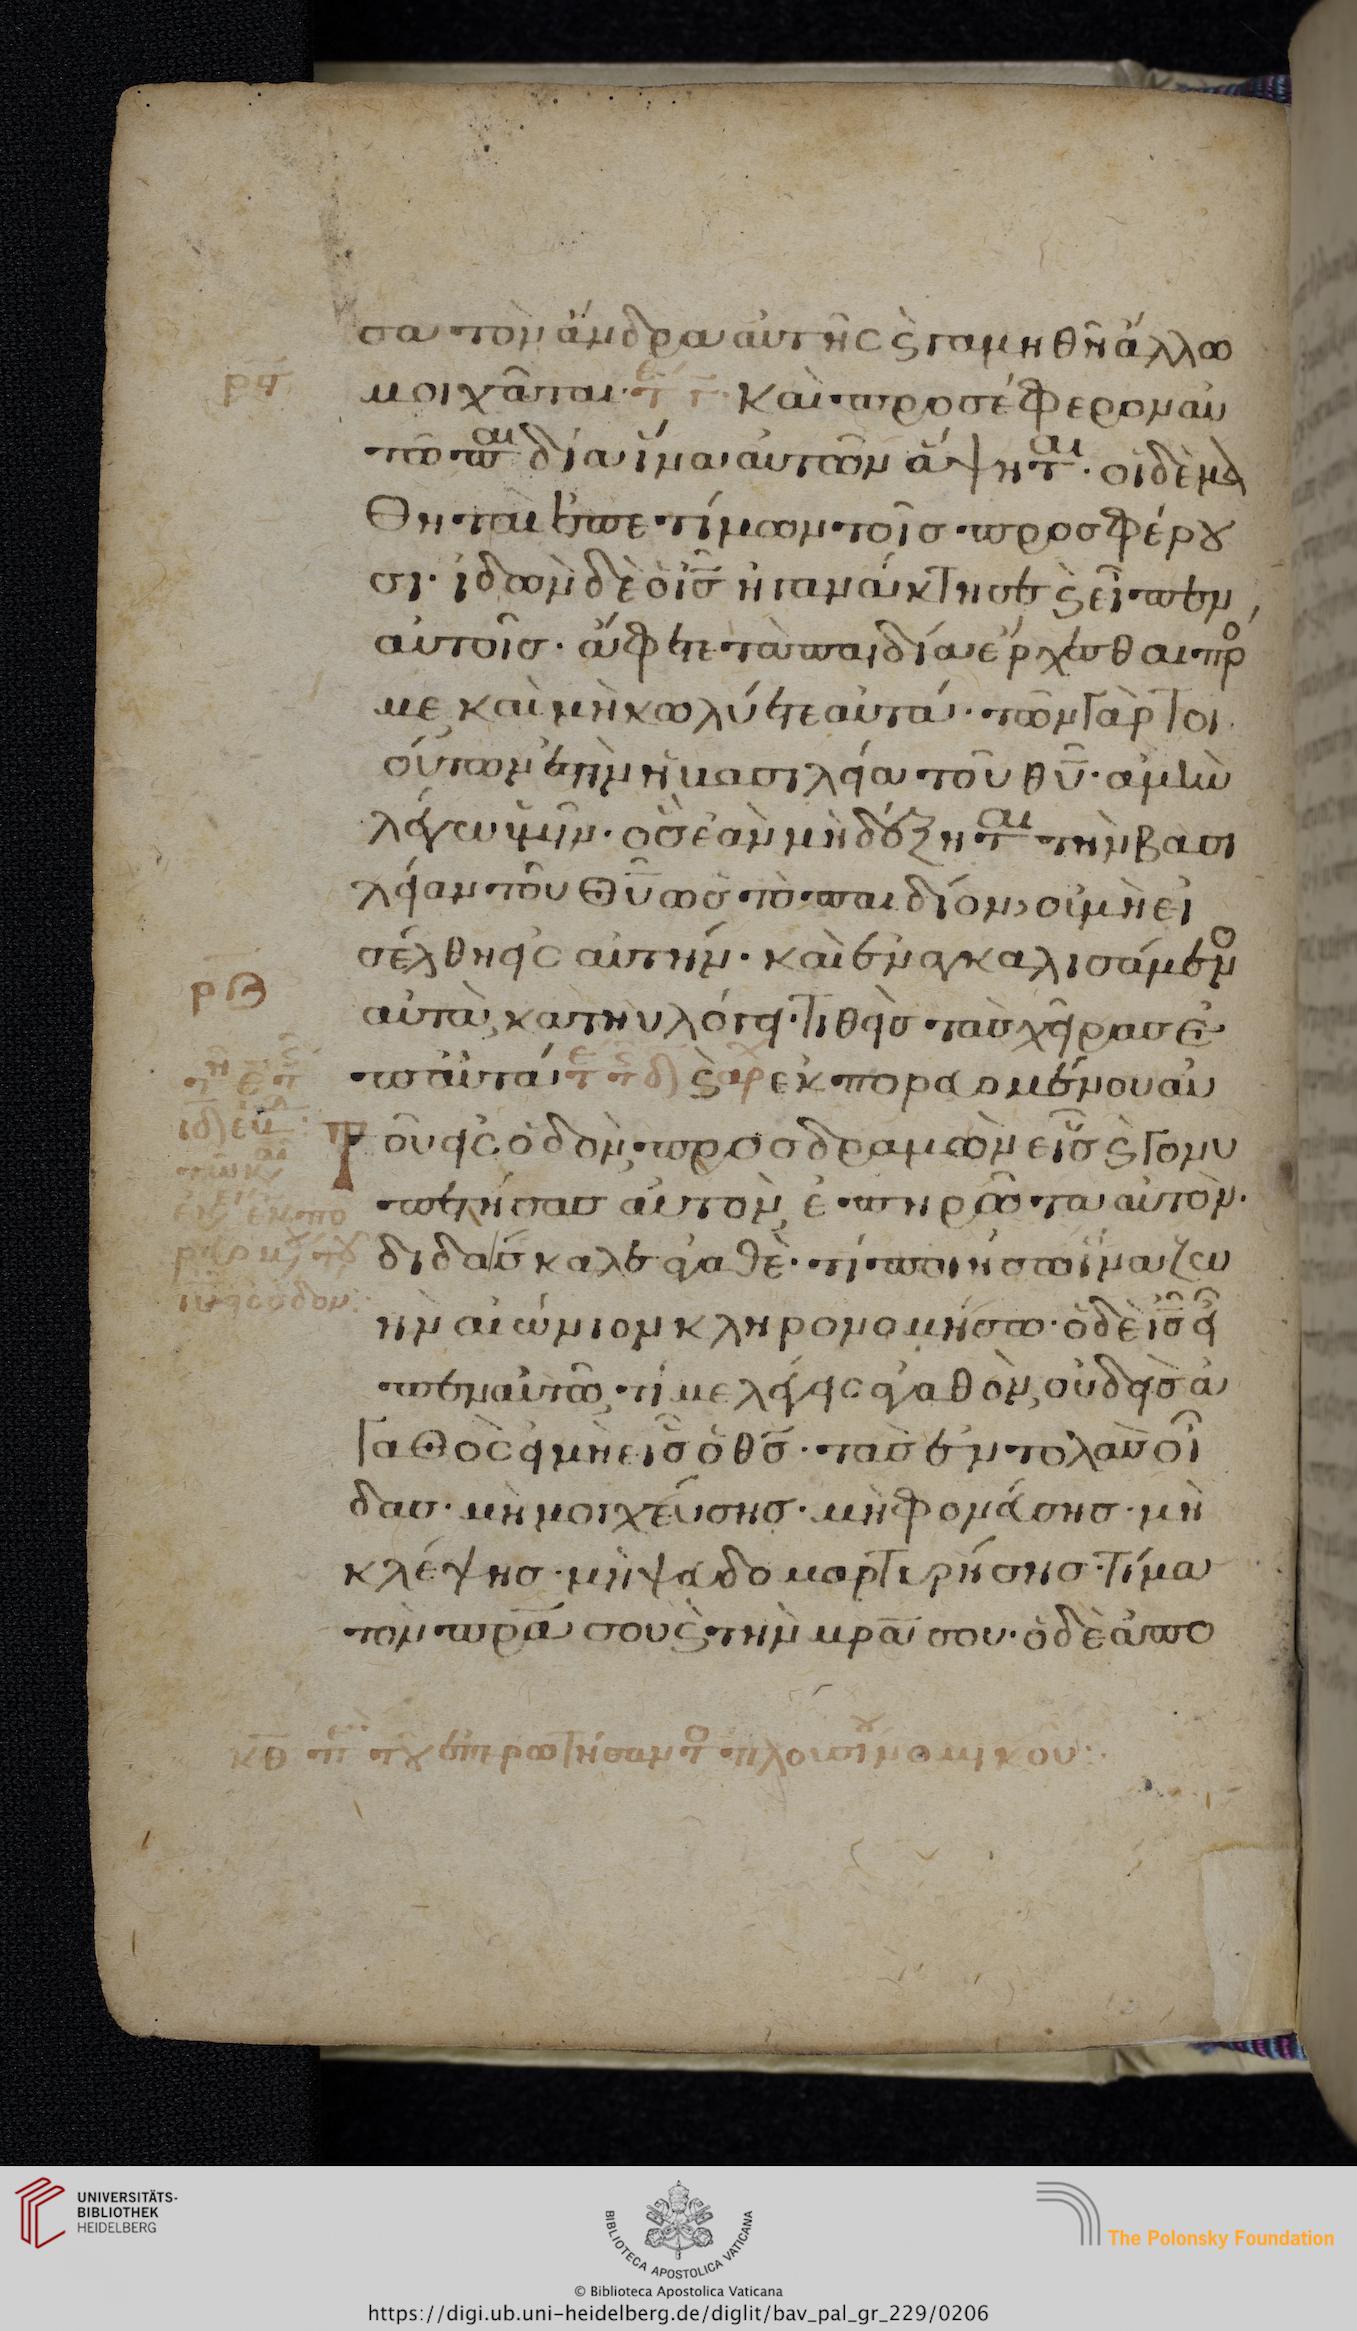 σα τὸν ἄνδρα αὐτῆς ϗ γαμηθῆ ἄλλω
μοιχᾶται· Καὶ προσέφερον αυ
τῶ παιδία ἵνα αὐτῶν ἅψηται· οἱ δὲ μα
θηταὶ ἐπετίμων τοῖς προσφέρου
σι· ἰδὼν δὲ ὁ ις ἠγανάκτησε ϗ εἶπεν,
αὐτοῖς· ἄφετε τὰ παιδία ἔρχεσθαι πρ
με καὶ μὴ κωλύετε αὐτά· τῶν γὰρ τοι
ούτων ἐστὶν ἡ βασιλεία τοῦ θυ· ἀμὴν
λέγω ὑμῖν· ὃς ἐὰν μὴ δέξηται τὴν βασι
λείαν τοῦ θυ ὡς τὸ παιδίον, οὐ μὴ εἰ
σέλθη εἰς αὐτήν· καὶ ἐναγκαλισάμενο
ρβ
αὐτὰ, κατηυλόγει· τιθεὶς τὰς χεῖρας ἐ
π αὐτά ϗ ἐκπορευομένου αὐ
τοῦ εἰς ὁδὸν, προσδραμὼν εἷς ϗ γονυ
πετήσας αὐτὸν, ἐπηρῶτα αὐτὸν·
διδάσκαλε ἀγαθὲ· τί ποιήσω ἵνα ζω
ὴν αἰώνιον κληρονομήσω· ὁ δὲ ις εἶ
πεν αὐτῶ, τί με λέγεις ἀγαθὸν, οὐδεὶς ἀ
γαθὸς εἰ μὴ εἷς ὁ θς· τὰς ἐντολὰς οἶ
δας· μὴ μοιχεύσης· μὴ φονεύσης· μὴ
κλέψης· μὴ ψευδομαρτυρήσης· τίμα
τὸν πρα σου ϗ τὴν μρα σου· ὁ δὲ ἀπο
κθ ἐπερωτήσαντο πλουσίου νομικοῦ:
UNIVERSITÄTS-
BIBLIOTHEK
HEIDELBERG
BIBLIOTECA APOSTOLICA VATICANA
The Polonsky Foundation
© Biblioteca Apostolica Vaticana
https://digi.ub.uni-heidelberg.de/diglit/bav_pal_gr_229/0206